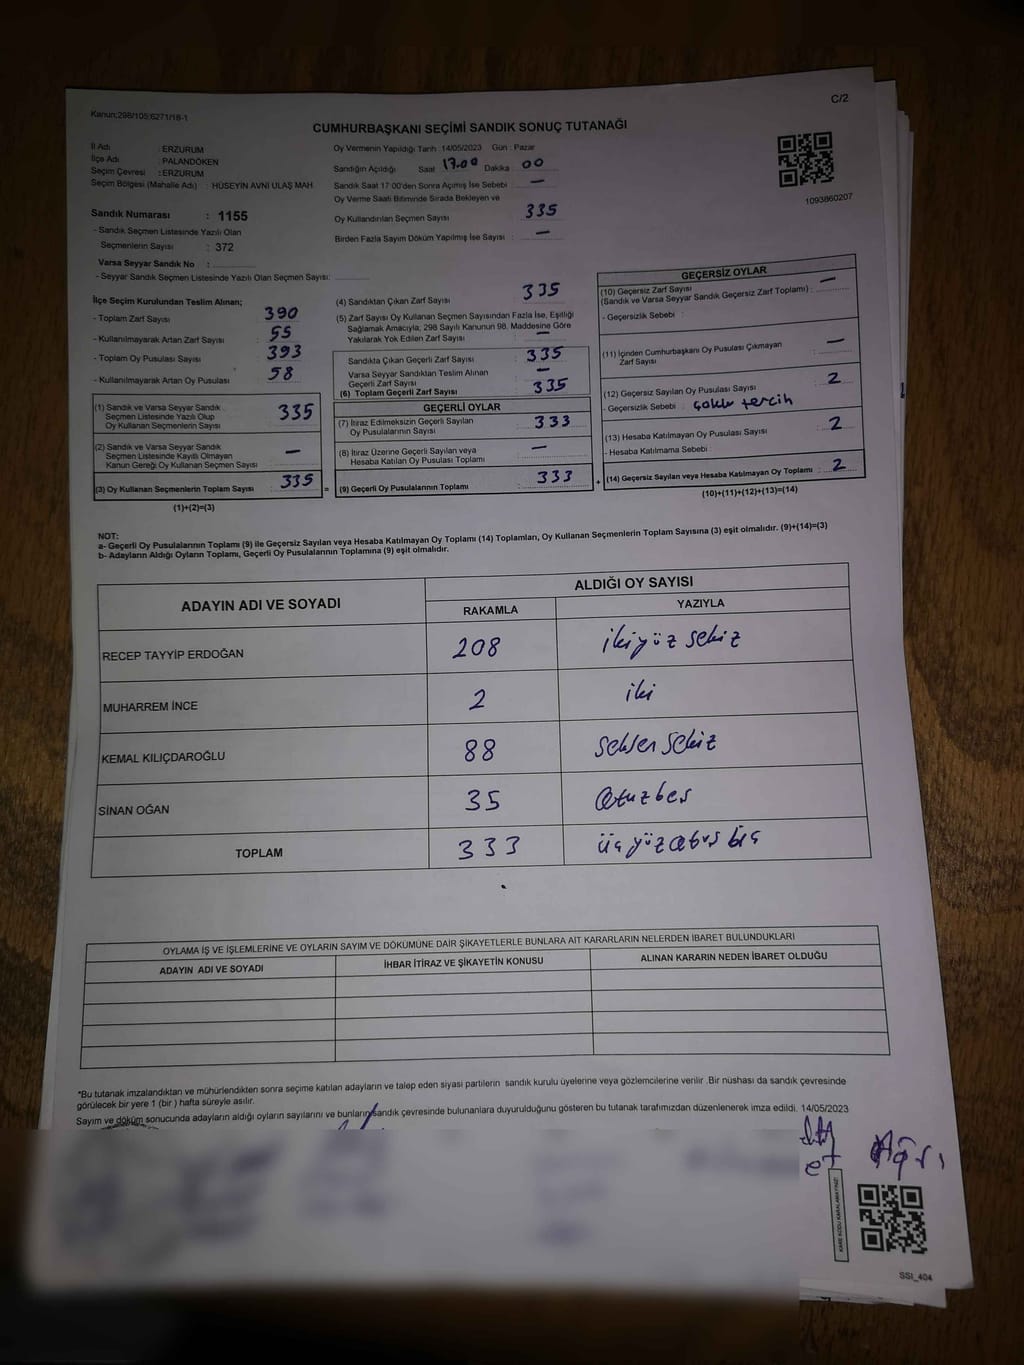 Kanun;298/105;6271/18-1
C/2
CUMHURBAŞKANI SEÇİMİ SANDIK SONUÇ TUTANAĞI
İl Adı : ERZURUM
İlçe Adı : PALANDÖKEN
Seçim Çevresi : ERZURUM
Seçim Bölgesi (Mahalle Adı) : HÜSEYİN AVNİ ULAŞ MAH
Sandık Numarası : 1155
- Sandık Seçmen Listesinde Yazılı Olan
Seçmenlerin Sayısı : 372
Varsa Seyyar Sandık No :
- Seyyar Sandık Seçmen Listesinde Yazılı Olan Seçmen Sayısı:
Oy Vermenin Yapıldığı Tarih :14/05/2023 Gün : Pazar
Sandığın Açıldığı Saat 17.00 Dakika 00
Sandık Saat 17:00'den Sonra Açımış İse Sebebi : —
Oy Verme Saati Bitiminde Sırada Bekleyen ve
Oy Kullandırılan Seçmen Sayısı : 335
Birden Fazla Sayım Döküm Yapılmış İse Sayısı : —
1093860207
İlçe Seçim Kurulundan Teslim Alınan;
- Toplam Zarf Sayısı : 390
- Kullanılmayarak Artan Zarf Sayısı : 55
- Toplam Oy Pusulası Sayısı : 393
- Kullanılmayarak Artan Oy Pusulası : 58
(1) Sandık ve Varsa Seyyar Sandık
Seçmen Listesinde Yazılı Olup
Oy Kullanan Seçmenlerin Sayısı : 335
(2) Sandık ve Varsa Seyyar Sandık
Seçmen Listesinde Kayıtlı Olmayan
Kanun Gereği Oy Kullanan Seçmen Sayısı : —
(3) Oy Kullanan Seçmenlerin Toplam Sayısı : 335
(1)+(2)=(3)
(4) Sandıktan Çıkan Zarf Sayısı : 335
(5) Zarf Sayısı Oy Kullanan Seçmen Sayısından Fazla İse, Eşitliği
Sağlamak Amacıyla; 298 Sayılı Kanunun 98. Maddesine Göre
Yakılarak Yok Edilen Zarf Sayısı : —
Sandıkta Çıkan Geçerli Zarf Sayısı : 335
Varsa Seyyar Sandıktan Teslim Alınan
Geçerli Zarf Sayısı : —
(6) Toplam Geçerli Zarf Sayısı : 335
GEÇERLİ OYLAR
(7) İtiraz Edilmeksizin Geçerli Sayılan
Oy Pusulalarının Sayısı : 333
(8) İtiraz Üzerine Geçerli Sayılan veya
Hesaba Katılan Oy Pusulası Toplamı : —
= (9) Geçerli Oy Pusulalarının Toplamı : 333
GEÇERSİZ OYLAR
(10) Geçersiz Zarf Sayısı
(Sandık ve Varsa Seyyar Sandık Geçersiz Zarf Toplamı) : —
- Geçersizlik Sebebi :
(11) İçinden Cumhurbaşkanı Oy Pusulası Çıkmayan
Zarf Sayısı : —
(12) Geçersiz Sayılan Oy Pusulası Sayısı : 2
- Geçersizlik Sebebi : çoklu tercih
(13) Hesaba Katılmayan Oy Pusulası Sayısı : 2
- Hesaba Katılmama Sebebi :
+ (14) Geçersiz Sayılan veya Hesaba Katılmayan Oy Toplamı : 2
(10)+(11)+(12)+(13)=(14)
NOT:
a- Geçerli Oy Pusulalarının Toplamı (9) ile Geçersiz Sayılan veya Hesaba Katılmayan Oy Toplamı (14) Toplamları, Oy Kullanan Seçmenlerin Toplam Sayısına (3) eşit olmalıdır. (9)+(14)=(3)
b- Adayların Aldığı Oyların Toplamı, Geçerli Oy Pusulalarının Toplamına (9) eşit olmalıdır.
ADAYIN ADI VE SOYADI ALDIĞI OY SAYISI
RAKAMLA YAZIYLA
RECEP TAYYİP ERDOĞAN 208 ikiyüz sekiz
MUHARREM İNCE 2 iki
KEMAL KILIÇDAROĞLU 88 seksen sekiz
SİNAN OĞAN 35 otuzbeş
TOPLAM 333 üç yüz otuz üç
OYLAMA İŞ VE İŞLEMLERİNE VE OYLARIN SAYIM VE DÖKÜMÜNE DAİR ŞİKAYETLERLE BUNLARA AİT KARARLARIN NELERDEN İBARET BULUNDUKLARI
ADAYIN ADI VE SOYADI İHBAR İTİRAZ VE ŞİKAYETİN KONUSU ALINAN KARARIN NEDEN İBARET OLDUĞU
*Bu tutanak imzalandıktan ve mühürlendikten sonra seçime katılan adayların ve talep eden siyasi partilerin sandık kurulu üyelerine veya gözlemcilerine verilir .Bir nüshası da sandık çevresinde
görülecek bir yere 1 (bir ) hafta süreyle asılır.
Sayım ve döküm sonucunda adayların aldığı oyların sayılarını ve bunların sandık çevresinde bulunanlara duyurulduğunu gösteren bu tutanak tarafımızdan düzenlenerek imza edildi. 14/05/2023
KARE KODU KARALAMAYINIZ!
SSI_404